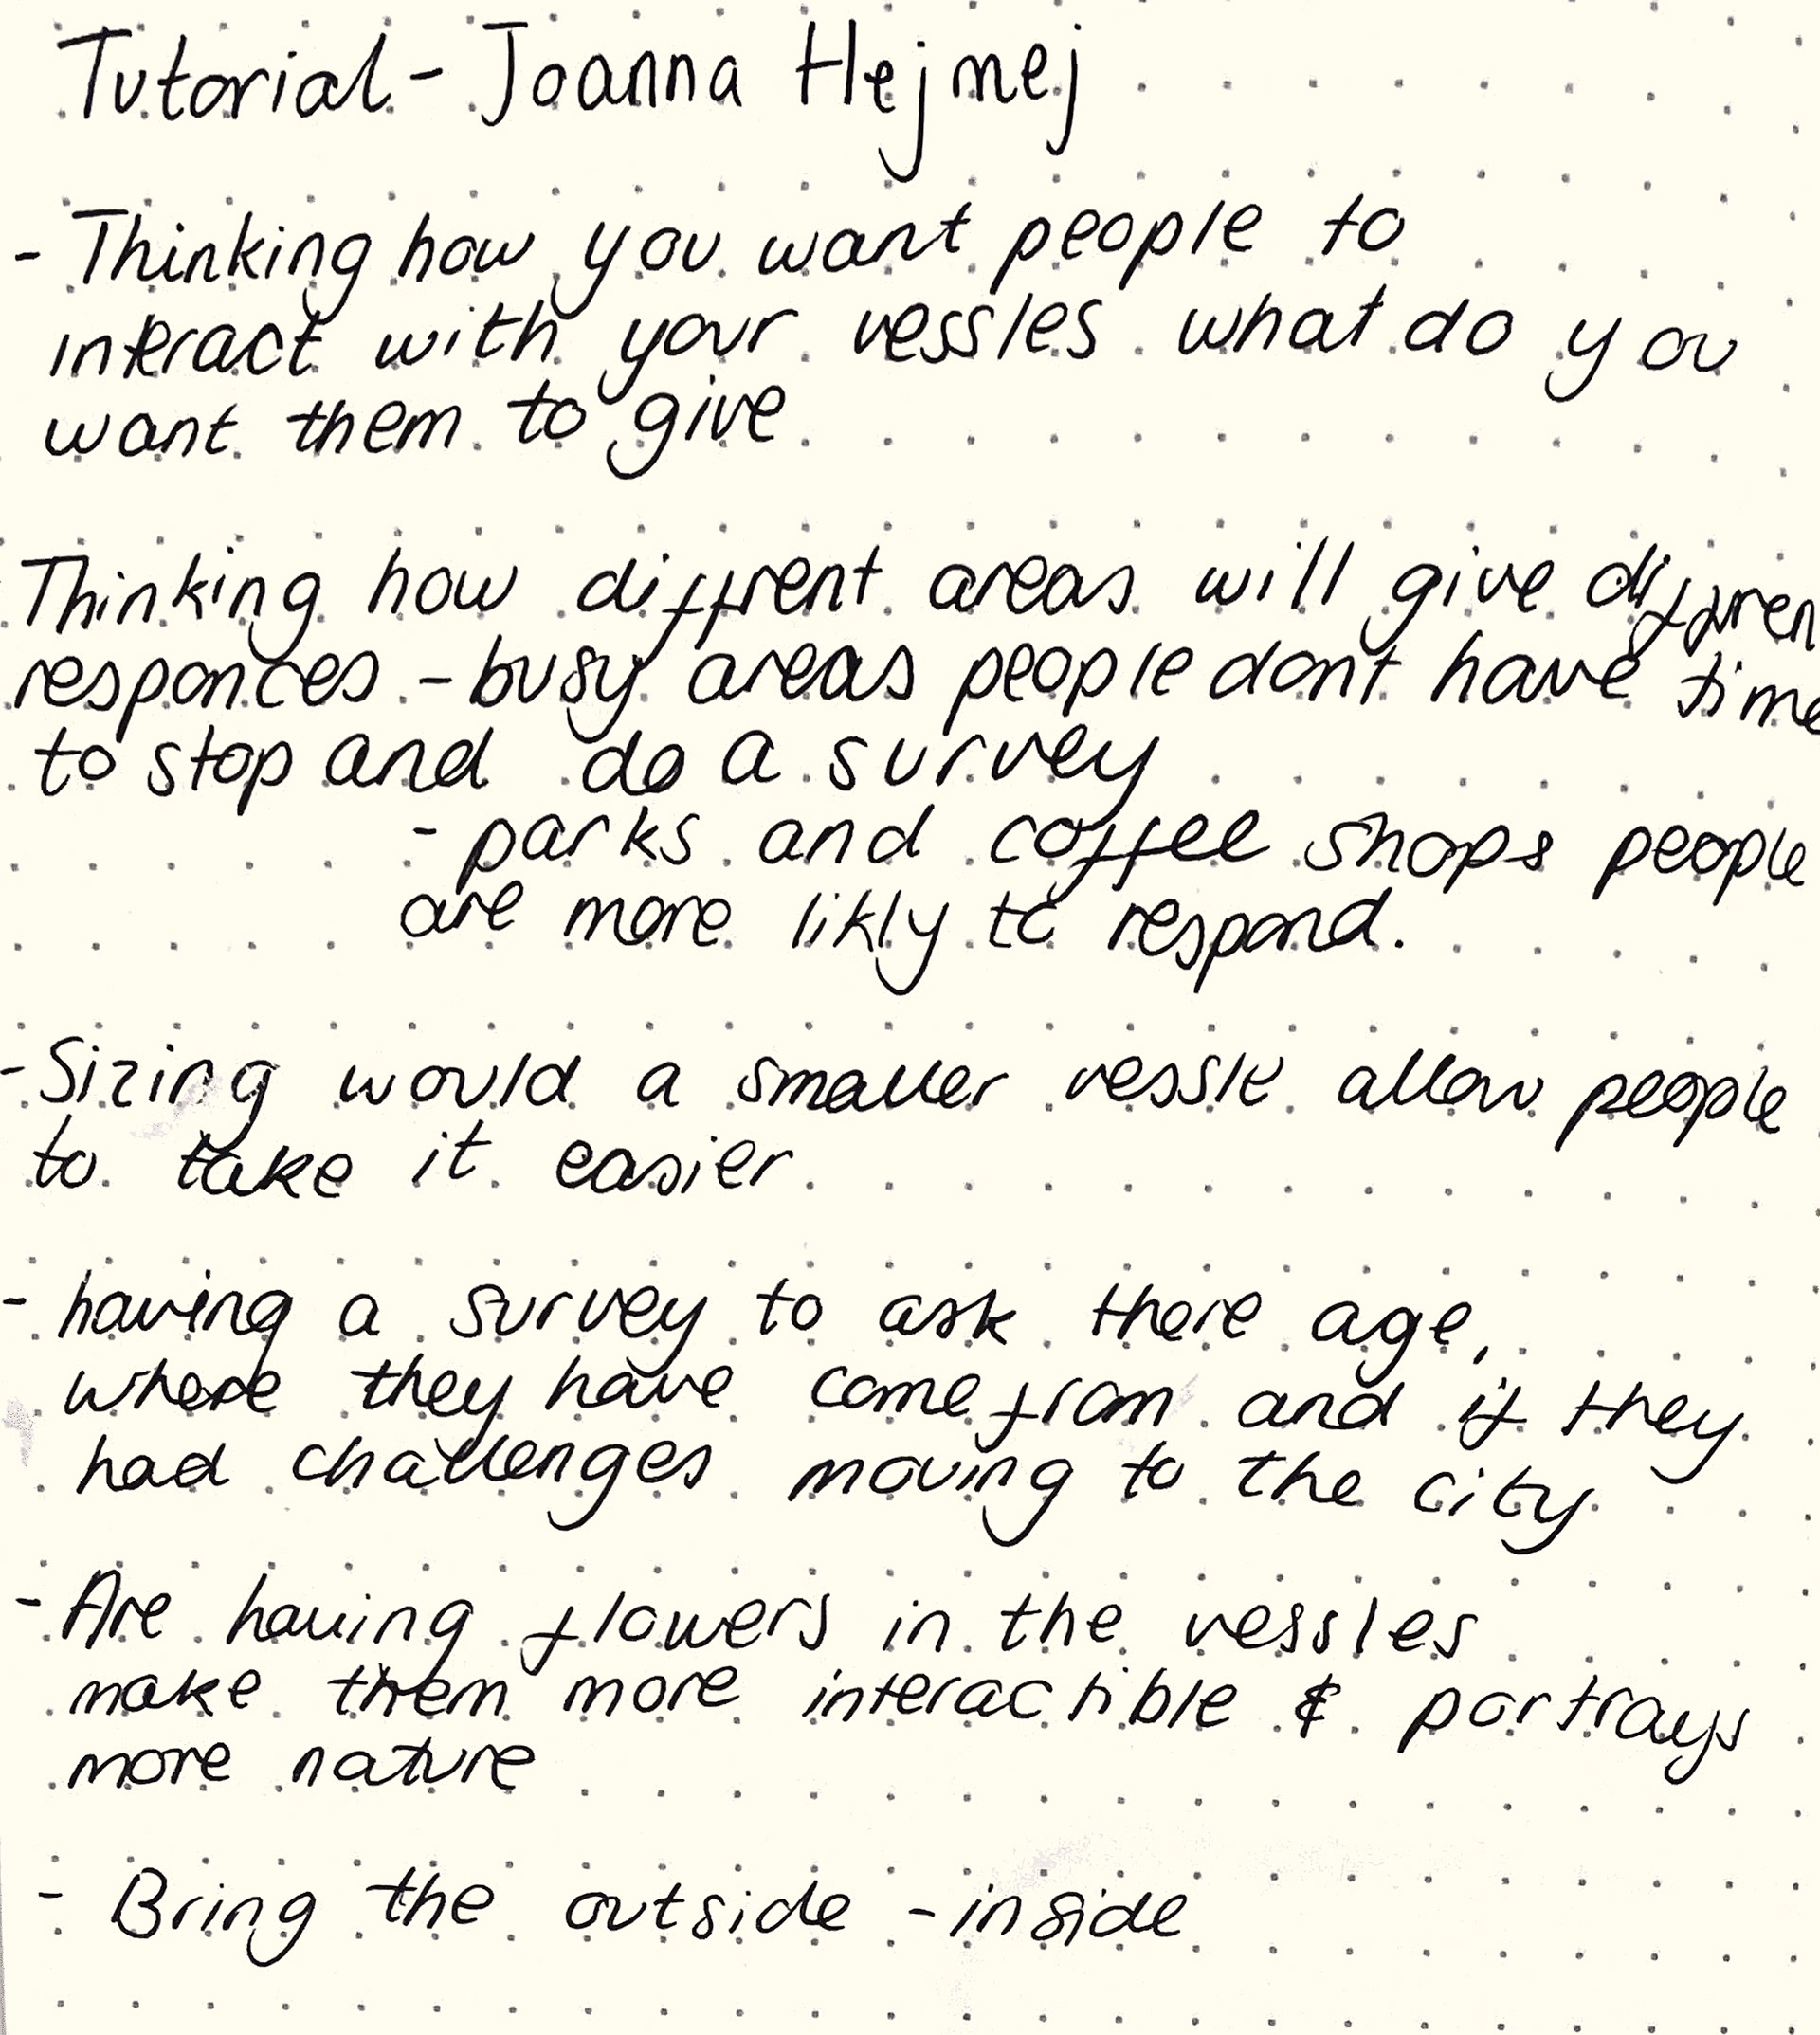 Tutorial - Joanna Hejmej
- Thinking how you want people to
interact with your vessles what do you
want them to give
Thinking how diffrent areas will give diffren
responces - busy areas people dont have time
to stop and do a survey
- parks and coffee shops people
are more likly to respond.
- Sizing would a smaller vessle allow people
to take it easier.
- having a survey to ask there age,
where they have come from and if they
had challenges moving to the city
- Are having flowers in the vessles
make them more interactible & portrays
more nature
- Bring the outside - inside